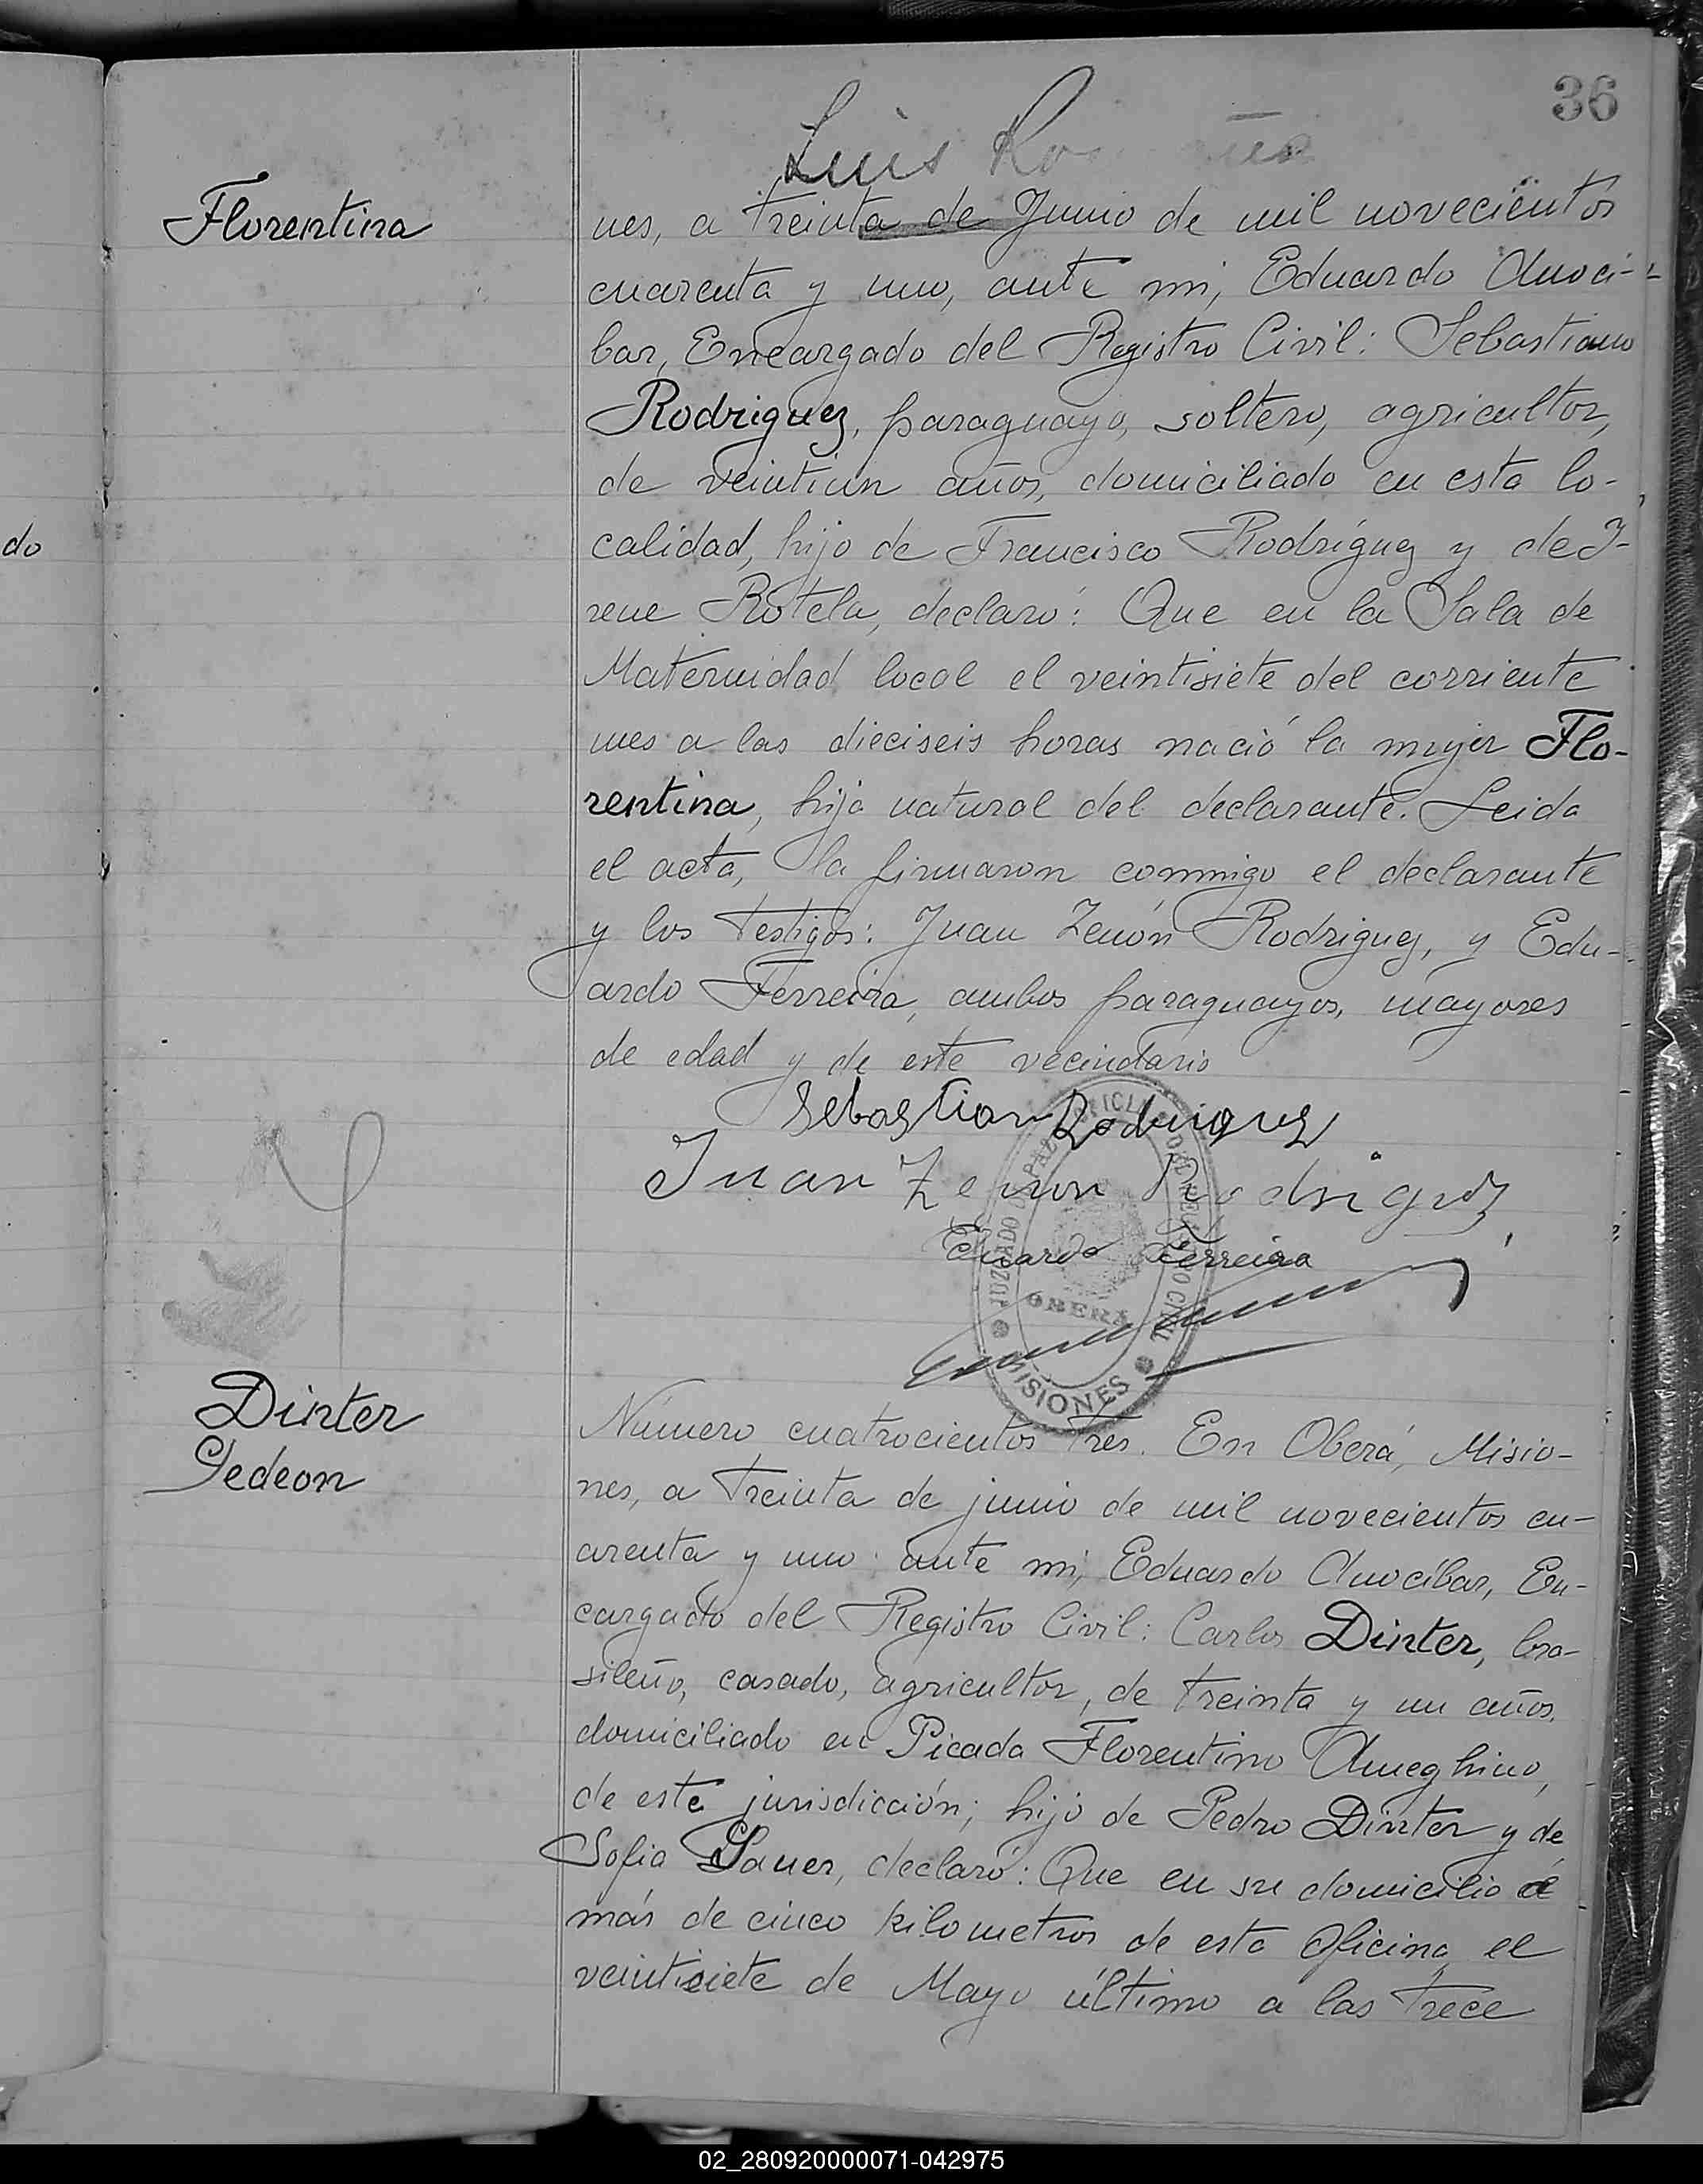 36
Luis
do
Florentina
nes, a treinta de Junio de mil novecientos
cuarenta y uno, ante mi, Eduardo Anoci-
bar, Encargado del Registro Civil: Sebastiano
Rodriguez, paraguayo, soltero, agricultor,
de veintiun años, domiciliado en esta lo-
calidad, hijo de Francisco Rodríguez y de I-
rene Rotela, declaró: Que en la Sala de
Maternidad local el veintisiete del corriente
mes a las dieciseis horas nació la mujer Flo-
rentina, hija natural del declarante. Leida
el acta, la firmaron conmigo el declarante
y los testigos: Juan Zenón Rodriguez, y Edu-
ardo Ferreira, ambos paraguayos, mayores
de edad y de este vecindario
Sebastian Rodriguez
Juan Zenon Rodriguez
Eduardo Ferreira
JUZGADO DE PAZ DEL REGISTRO CIVIL
OBERÁ
MISIONES
Dinter
Gedeon
Número cuatrocientos tres. En Oberá, Misio-
nes, a treinta de junio de mil novecientos cu-
arenta y uno ante mi, Eduardo Anocíbar, En-
cargado del Registro Civil: Carlos Dinter, bra-
sileño, casado, agricultor, de treinta y un años,
domiciliado en Picada Florentino Ameghino,
de esta jurisdicción; hijo de Pedro Dinter y de
Sofia Sauer, declaró: Que en su domicilio a
más de cinco kilometros de esta Oficina, el
veintisiete de Mayo último a las trece
02_280920000071-042975